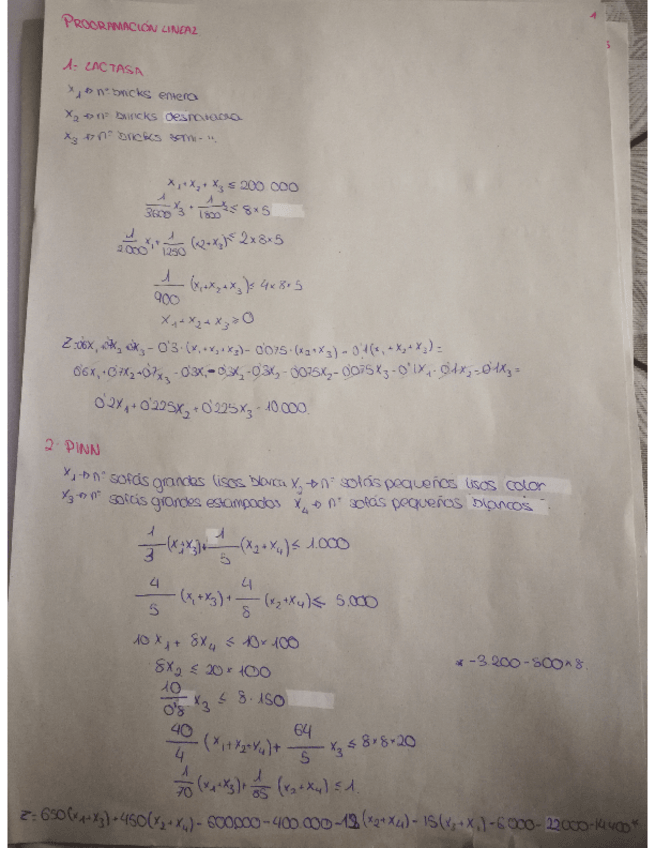 1
PROGRAMACIÓN LINEAL
1- LACTASA
x₁ → nº bricks entera
x₂ → nº bricks desnatada
x₃ → nº bricks semi-"
x₁ + x₂ + x₃ ≤ 200.000
1/3600 x₃ + 1/1800 x₂ ≤ 8×5
1/2000 x₁ + 1/1250 (x₂+x₃) ≤ 2×8×5
1/900 (x₁+x₂+x₃) ≤ 4×8×5
x₁ + x₂ + x₃ ≥ 0
Z = 0'6x₁ + 0'7x₂ + 0'7x₃ - 0'3·(x₁+x₂+x₃) - 0'075·(x₂+x₃) - 0'1(x₁+x₂+x₃) =
0'6x₁ + 0'7x₂ + 0'7x₃ - 0'3x₁ - 0'3x₂ - 0'3x₃ - 0'075x₂ - 0'075x₃ - 0'1x₁ - 0'1x₂ - 0'1x₃ =
0'2x₁ + 0'225x₂ + 0'225x₃ - 10000.
2- PINN
x₁ → nº sofás grandes lisos blanca x₂ → nº sofás pequeños lisos color
x₃ → nº sofás grandes estampados x₄ → nº sofás pequeños blancos
1/3 (x₁+x₃) + 1/5 (x₂+x₄) ≤ 1.000
4/5 (x₁+x₃) + 4/8 (x₂+x₄) ≤ 5.000
10x₁ + 8x₄ ≤ 10×100
* -3.200-500×8
8x₂ ≤ 20×100
10/0'8 x₃ ≤ 8·150
40/4 (x₁+x₂+x₄) + 64/5 x₃ ≤ 8×8×20
1/70 (x₁+x₃) + 1/85 (x₂+x₄) ≤ 1.
Z = 650(x₁+x₃) + 450(x₂+x₄) - 600.000 - 400.000 - 12(x₂+x₄) - 15(x₃+x₁) - 6.000 - 22000 - 14400*